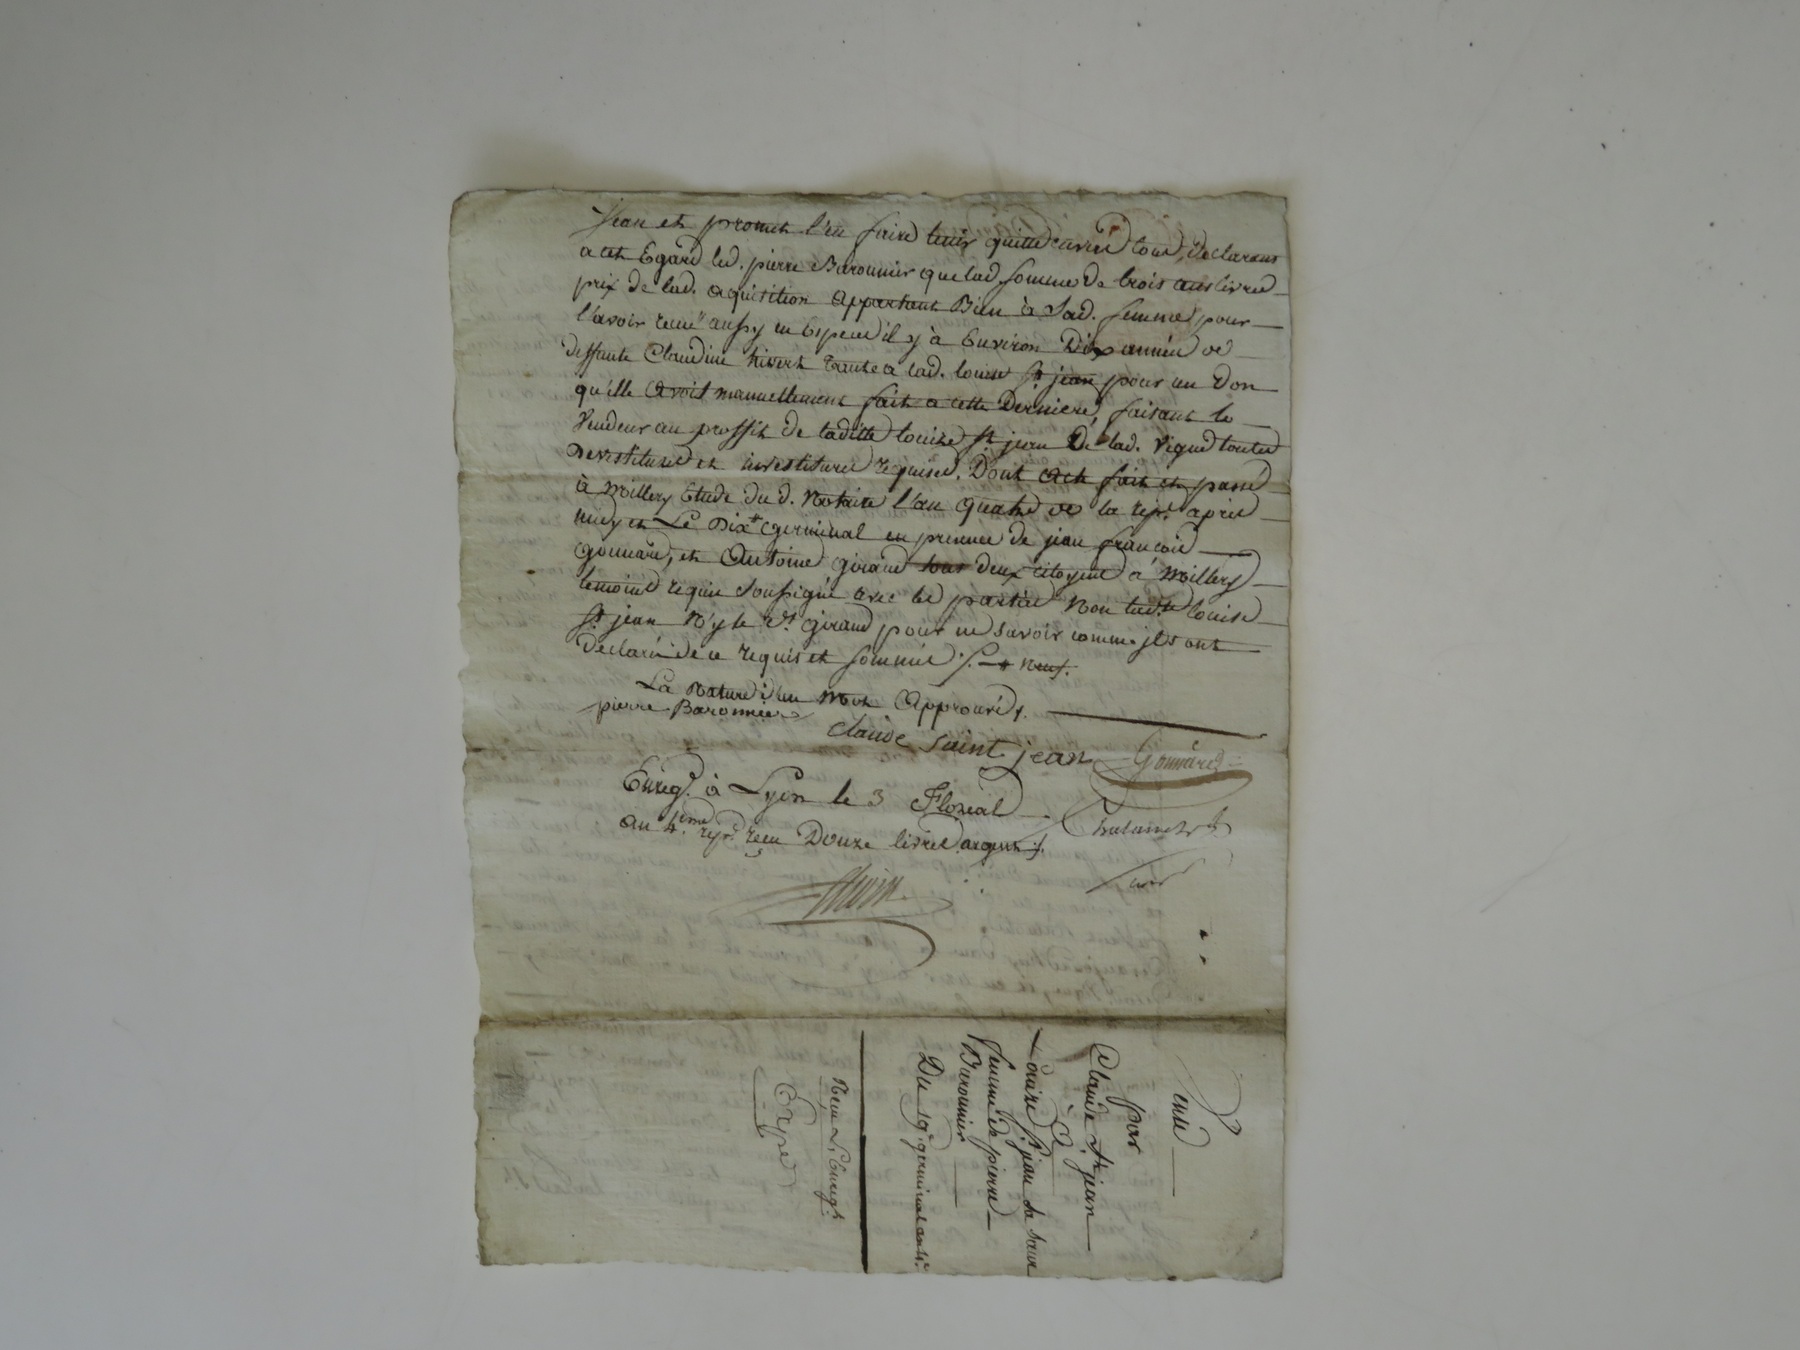 Jean et promet l'en faire tenir quitte envers tous, declarant
a cet Egard led. pierre Baronnier que lad. somme de trois cens livres
prix de lad. aquisition appartant Bien à Sad. femme pour
l'avoir recue aussy en Espece il y à Environ Dix années de
deffunte Claudine hivert tante a lad. louise St jean pour un Don
qu'elle avoit manuellement fait a cette Derniere, faisant le
Vendeur au proffit de laditte louise St jean De lad. Vigne toutes
Devestitures et investitures requises. Dont acte fait et passé
à Millery Etude du d. Notaire l'an quatre de la repe. apres
midy et Le germinal en presence de jean françois
gonnard, et Antoine giraud deux citoyens à Millery
temoins requis soussignés avec les parties Non lad. louise
St jean N'y le dt giraud pour ne savoir comme jls ont
declaré de ce requis et sommés
La Nature d'un Mot Approuvés.
pierre Baronnier
claude saint jean Gonnard
Enregt. à Lyon le 3 Floréal
an 4eme. repe. recu Douze livres argent
Vente
par
Claude St jean
à
Louise St jean sa sœur
femme de pierre
Baronnier
Du 19e germinal an 4e
Recu L'Enregt.
Expé